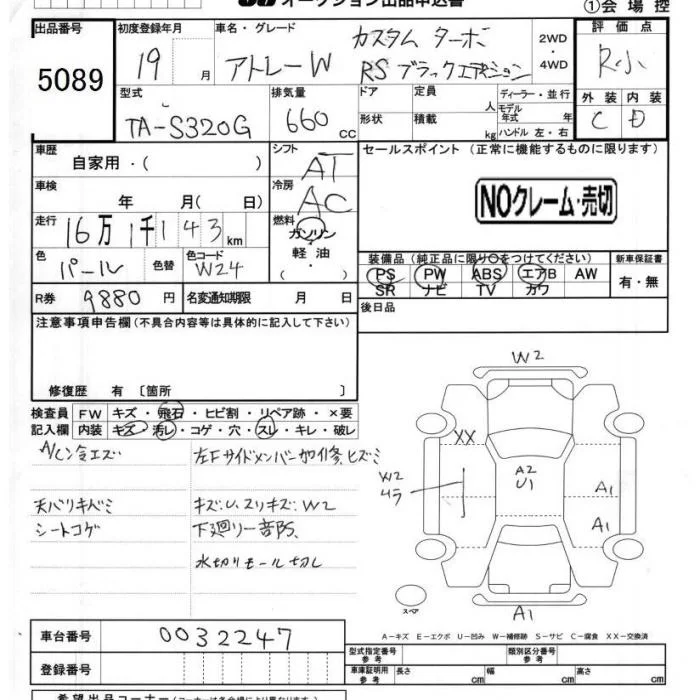 オークション出品申込書
①会場控
出品番号 初度登録年月 車名・グレード 評価点
5089
19 月 アトレーW カスタム ターボ
RS ブラックエディション
2WD・4WD
R小
型式 排気量 ドア 定員 人 ディーラー・並行
TA-S320G 660 cc
形状 積載 kg モデル年式 年 ハンドル 左・右
外装 内装
C D
車歴 シフト セールスポイント（正常に機能するものに限ります）
自家用・（ ） AT
NOクレーム・売切
車検 冷房
年 月(日) AC
走行 燃料
16万1千143km ガソリン
軽油
（・）
色 色替 色コード
パール W24
装備品（純正品に限り○をつけてください） 新車保証書
PS PW ABS エアB AW 有・無
SR ナビ TV カワ
R券 9880円 名変通知期限 月 日
後日品
注意事項申告欄（不具合内容等は具体的に記入して下さい）
修復歴 有 〔箇所 〕
検査員 FW キズ・飛石・ヒビ割・リペア跡・×要
記入欄 内装 キズ・汚レ・コゲ・穴・スレ・キレ・破レ
左Fサイドメンバー
天バリキバミ キズ:U、スリキズ:W2
シートコゲ
水切りモール切し
W2
XX
W2
A2
U1
A1
A1
スペア
A1
A−キズ E−エクボ U−凹み W−補修跡 S−サビ C−腐食 XX−交換済
車台番号 0032247
型式指定番号 参考 類別区分番号 参考
登録番号
車庫証明用 参考 長さ cm 幅 cm 高さ cm
希望出品コーナー